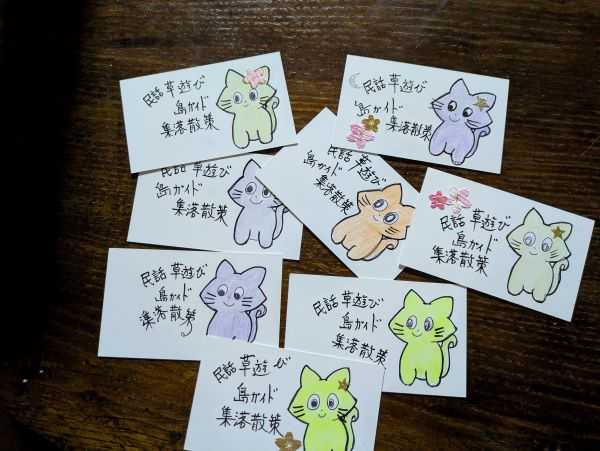 民話 草遊び
島ガイド
集落散策
民話 草遊び
島ガイド
集落散策
民話 草遊び
島ガイド
集落散策
民話 草遊び
島ガイド
集落散策
民話 草遊び
島ガイド
集落散策
民話 草遊び
島ガイド
集落散策
民話 草遊び
島ガイド
集落散策
民話 草遊び
島ガイド
集落散策